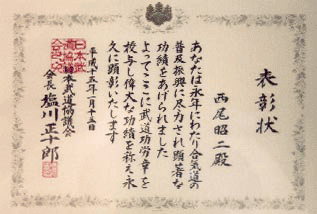 表彰状
西尾昭二殿
あなたは永年にわたり合気道の
普及振興に尽力され顕著な
功績をあげられました
よってここに武道功労章を
授与し偉大な功績を称え永
久に顕彰いたします
平成十五年一月十三日
日本武道協議会
会長 塩川正十郎